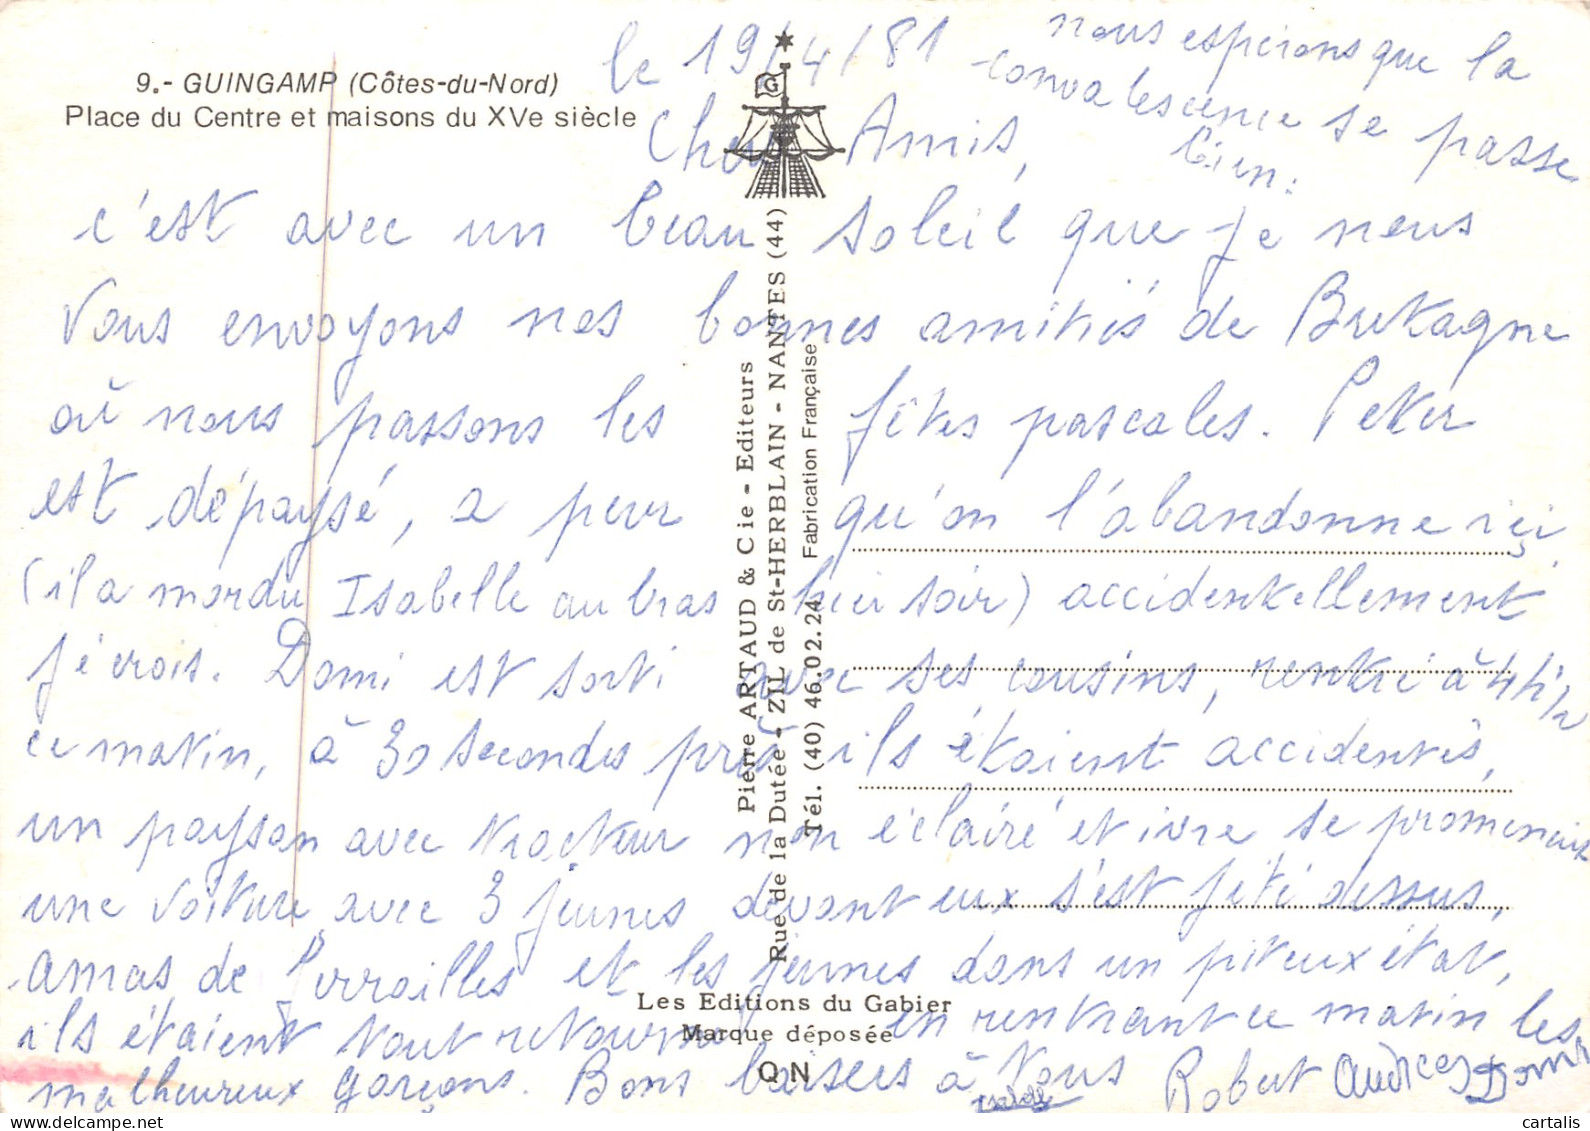 9.- GUINGAMP (Côtes-du-Nord)
Place du Centre et maisons du XVe siècle
le 19/4/81
nous espérons que la
convalescence se passe
bien.
Chers Amis,
c'est avec un beau soleil que je nous
vous envoyons nos bonnes amitiés de Bretagne
où nous passons les fêtes pascales. Peter
est dépaysé, a peur qu'on l'abandonne ici
(il a mordu Isabelle au bras hier soir) accidentellement
je crois. Domi est sorti avec ses cousins, rentré à 4h1/2
ce matin, à 30 secondes près ils étaient accidentés,
un paysan avec tracteur non éclairé et ivre se promenait
une voiture avec 3 jeunes devant eux s'est jeté dessus,
amas de ferrailles et les jeunes dans un piteux état,
ils étaient tout retournés en rentrant ce matin les
malheureux garçons. Bons baisers à Vous Robert
Domi
Isabelle
G
Pierre ARTAUD & Cie - Editeurs
Rue de la Dutée - ZIL de St-HERBLAIN - NANTES (44)
Tél. (40) 46.02.24 Fabrication Française
Les Editions du Gabier
Marque déposée
QN
cartalis